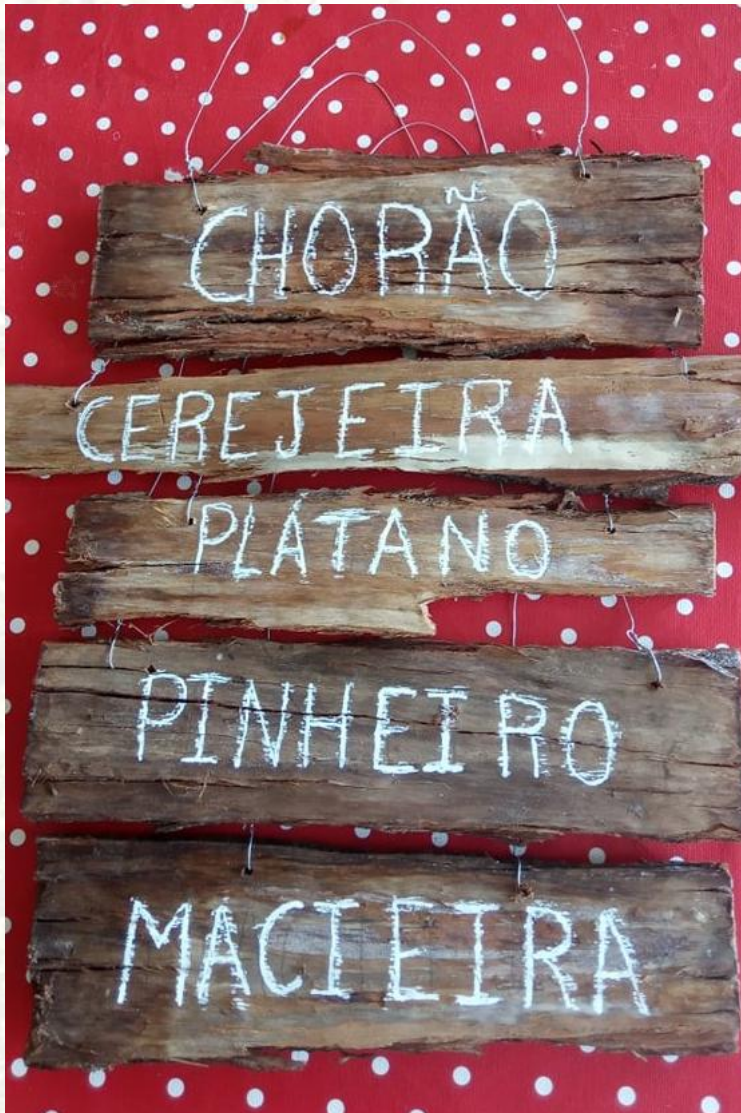 CHORÃO
CEREJEIRA
PLÁTANO
PINHEIRO
MACIEIRA